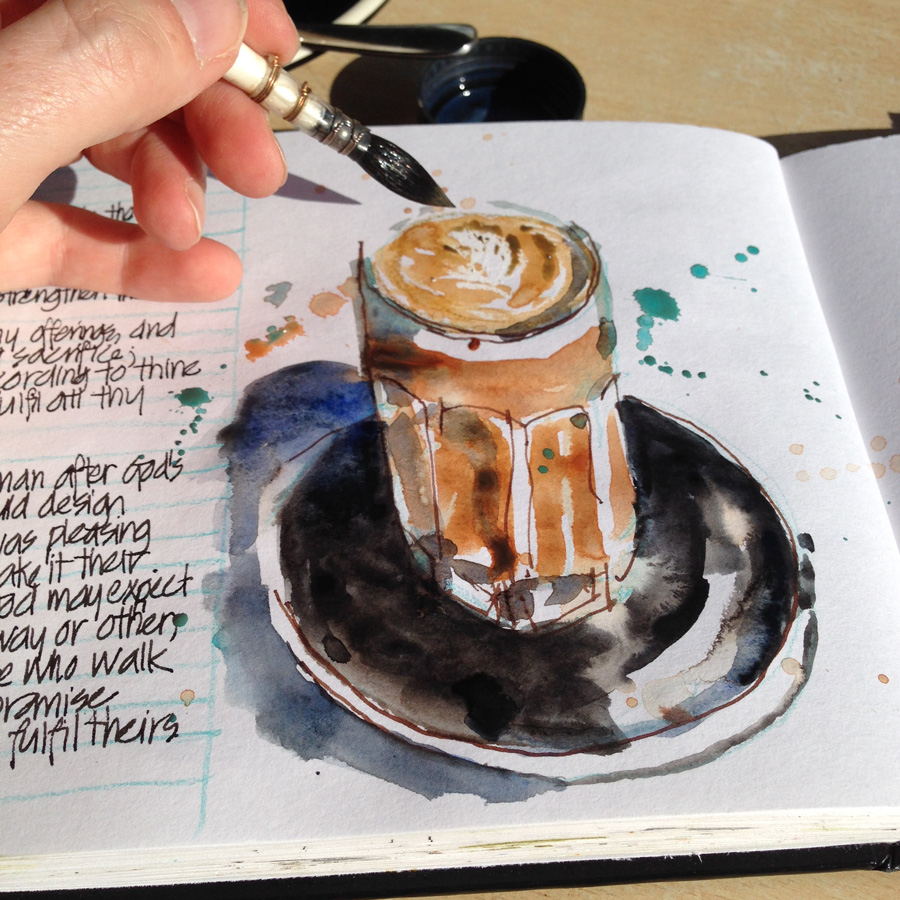 tha
strengthen
offerings, and
sacrifice;
according to thine
fulfil all thy
man after God's
design
was pleasing
make it their
God may expect
way or other,
who walk
promise
fulfil theirs